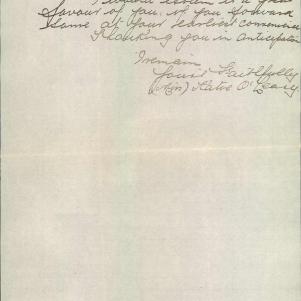 I would esteem it a great
favour of you if you forward
same at your earliest convenience
Thanking you in anticipation
I remain
Yours Faithfully
(Mrs) Katie O'Leary